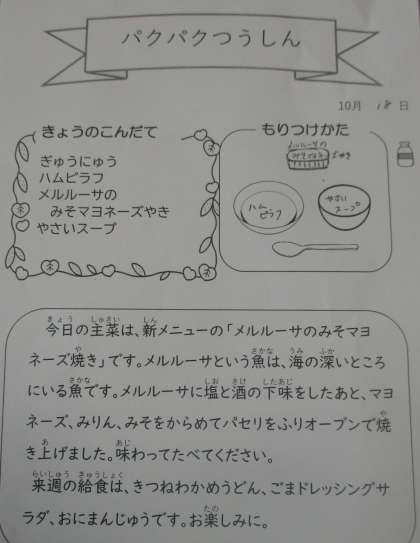 パクパクつうしん
10月 18 日
きょうのこんだて
ぎゅうにゅう
ハムピラフ
メルルーサの
みそマヨネーズやき
やさいスープ
もりつけかた
メルルーサの
みそマヨネーズやき
ハム
ピラフ
やさい
スープ
今日の主菜は、新メニューの「メルルーサのみそマヨ
ネーズ焼き」です。メルルーサという魚は、海の深いところ
にいる魚です。メルルーサに塩と酒の下味をしたあと、マヨ
ネーズ、みりん、みそをからめてパセリをふりオーブンで焼
き上げました。味わってたべてください。
来週の給食は、きつねわかめうどん、ごまドレッシングサ
ラダ、おにまんじゅうです。お楽しみに。